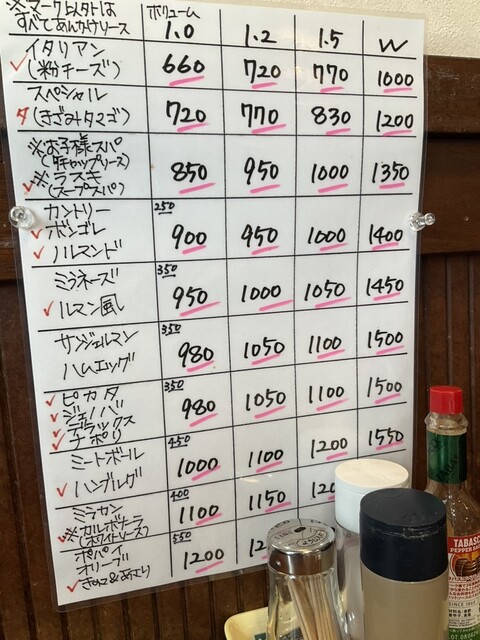 ※マーク以外は
すべてあんかけソース
ボリューム
1.0 1.2 1.5 W
イタリアン
✓(粉チーズ) 660 720 770 1000
スペシャル
(きざみタマゴ) 720 770 830 1200
※お子様スパ
(ケチャップソース)
✓※ラスキ
(スープスパ) 850 950 1000 1350
カントリー 250
✓ボンゴレ
✓ノルマンド 900 950 1000 1400
ミラネーズ 350
✓ルマン風 950 1000 1050 1450
サンジェルマン 350
ハムエッグ 980 1050 1100 1500
✓ピカタ 350
✓ジェノバ
✓デラックス
✓ナポリ 980 1050 1100 1500
ミートボール 450
✓ハンブルグ 1000 1100 1200 1550
ミラカン 400
✓※カルボナーラ
(ホワイトソース) 1100 1150 120
ポパイ 550
オリーブ
✓きのこ&あさり 1200 12
TABASCO
PEPPER SAUCE